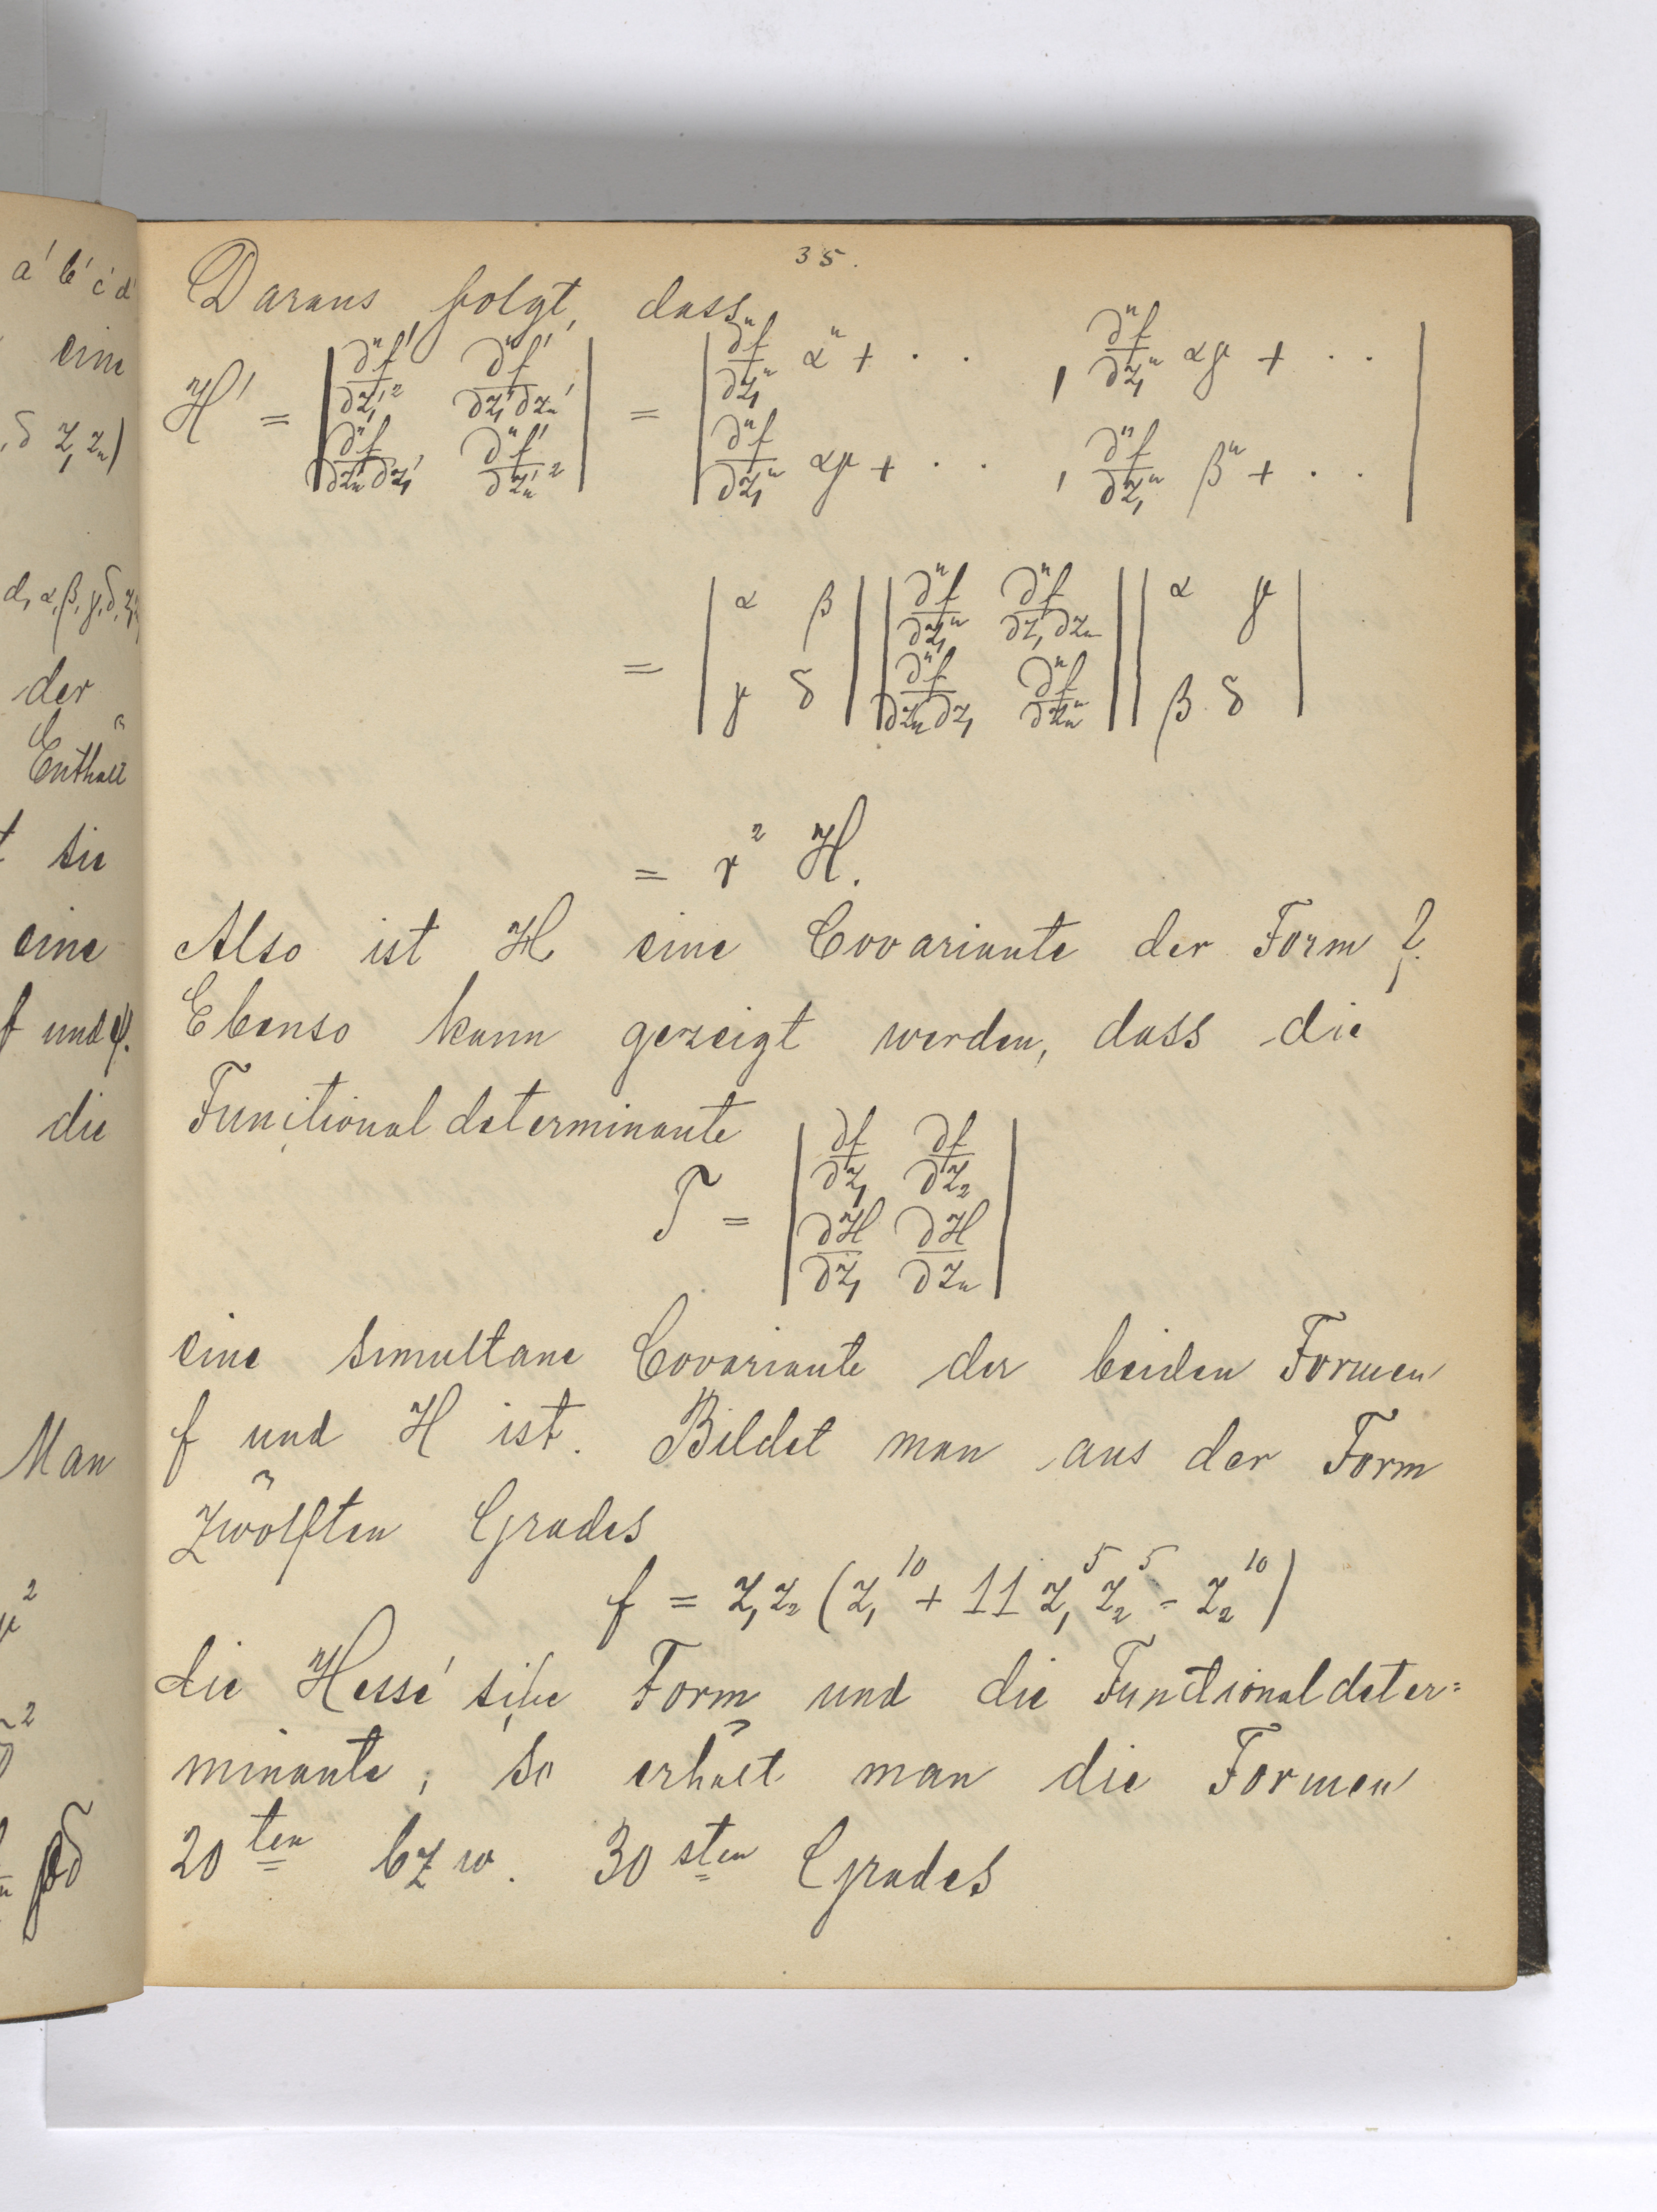 a' b' c' d'
eine
, δ z₁ z₂)
d, α, β, γ, δ, z₁
der
Enthält
sie
eine
f und φ.
die
Man
35.
Daraus folgt, dass
H' = | ∂²f'/∂z₁'² ∂²f'/∂z₁'∂z₂' | = | ∂²f/∂z₁² α² + . . , ∂²f/∂z₁² αγ + . . |
| ∂²f/∂z₂'∂z₁' ∂²f'/∂z₂'² | | ∂²f/∂z₁² αγ + . . . , ∂²f/∂z₁² β² + . . |
= | α β | | ∂²f/∂z₁² ∂²f/∂z₁∂z₂ | | α γ |
| γ δ | | ∂²f/∂z₂∂z₁ ∂²f/∂z₂² | | β δ |
= r² H.
Also ist H eine Covariante der Form f.
Ebenso kann gezeigt werden, dass die
Functionaldeterminante
T = | ∂f/∂z₁ ∂f/∂z₂ |
| ∂H/∂z₁ ∂H/∂z₂ |
eine simultane Covariante der beiden Formen
f und H ist. Bildet man aus der Form
zwölften Grades
f = z₁z₂ (z₁¹⁰ + 11 z₁⁵ z₂⁵ - z₂¹⁰)
die Hesse'sche Form und die Functionaldeter=
minante, so erhält man die Formen
20ten bzw. 30sten Grades